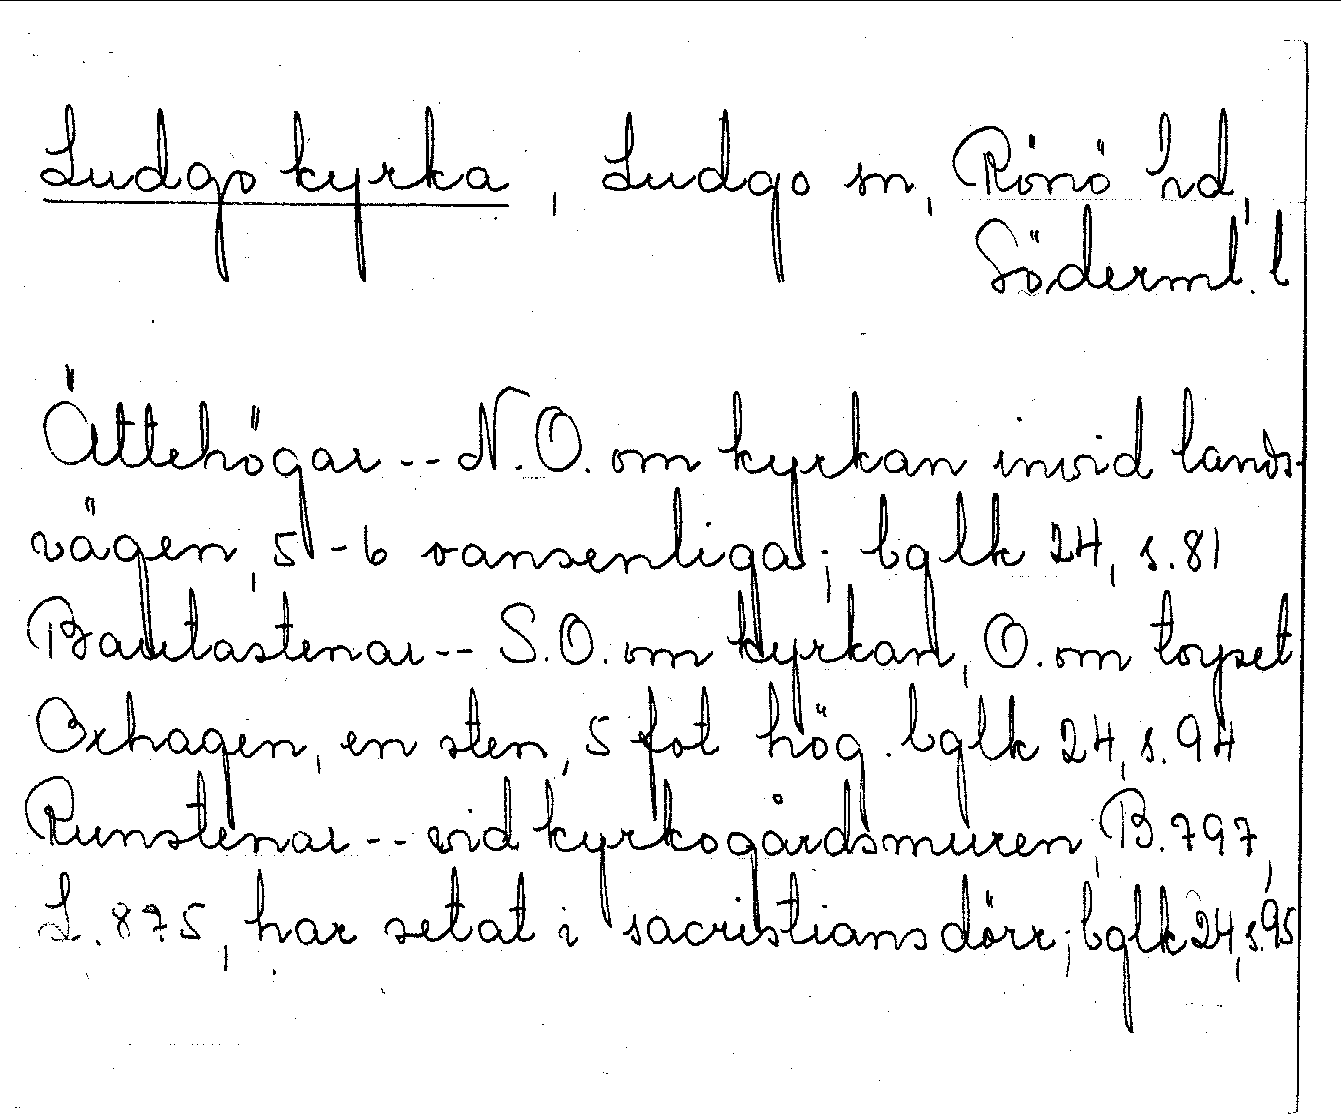 Ludgo kyrka, Ludgo sn, Rönö hd,
Söderml. l
Ättehögar -- N.O. om kyrkan invid lands-
vägen, 5-6 oansenliga; bglk 24, s.81
Bautastenar -- S.O. om kyrkan, O. om torpet
Oxhagen, en sten, 5 fot hög. bglk 24, s.94
Runstenar -- vid kyrkogårdsmuren, B.797,
L.875, har setat i sacristiansdörr; bglk 24, s.95